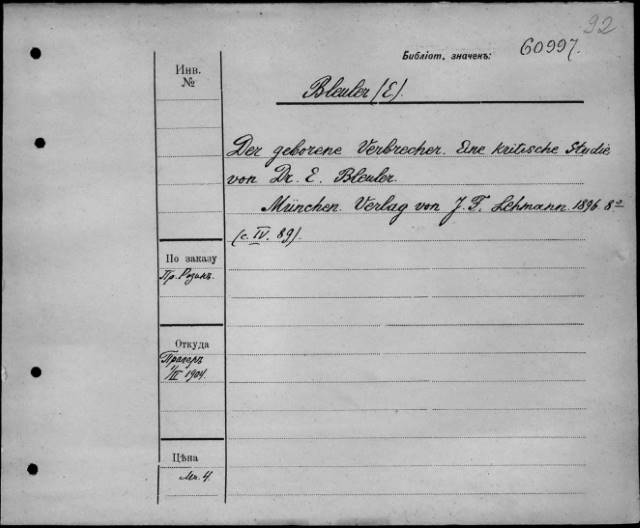 92
Библіот. значекъ: 60997.
Инв.
№
Bleuler (E).
Der geborene Verbrecher. Eine kritische Studie
von Dr. E. Bleuler.
München. Verlag von J. F. Lehmann. 1896 8º
(c. IV. 89).
По заказу
Пр. Розинъ.
Откуда
Прагеръ
1904.
Цѣна
Мк. 4.